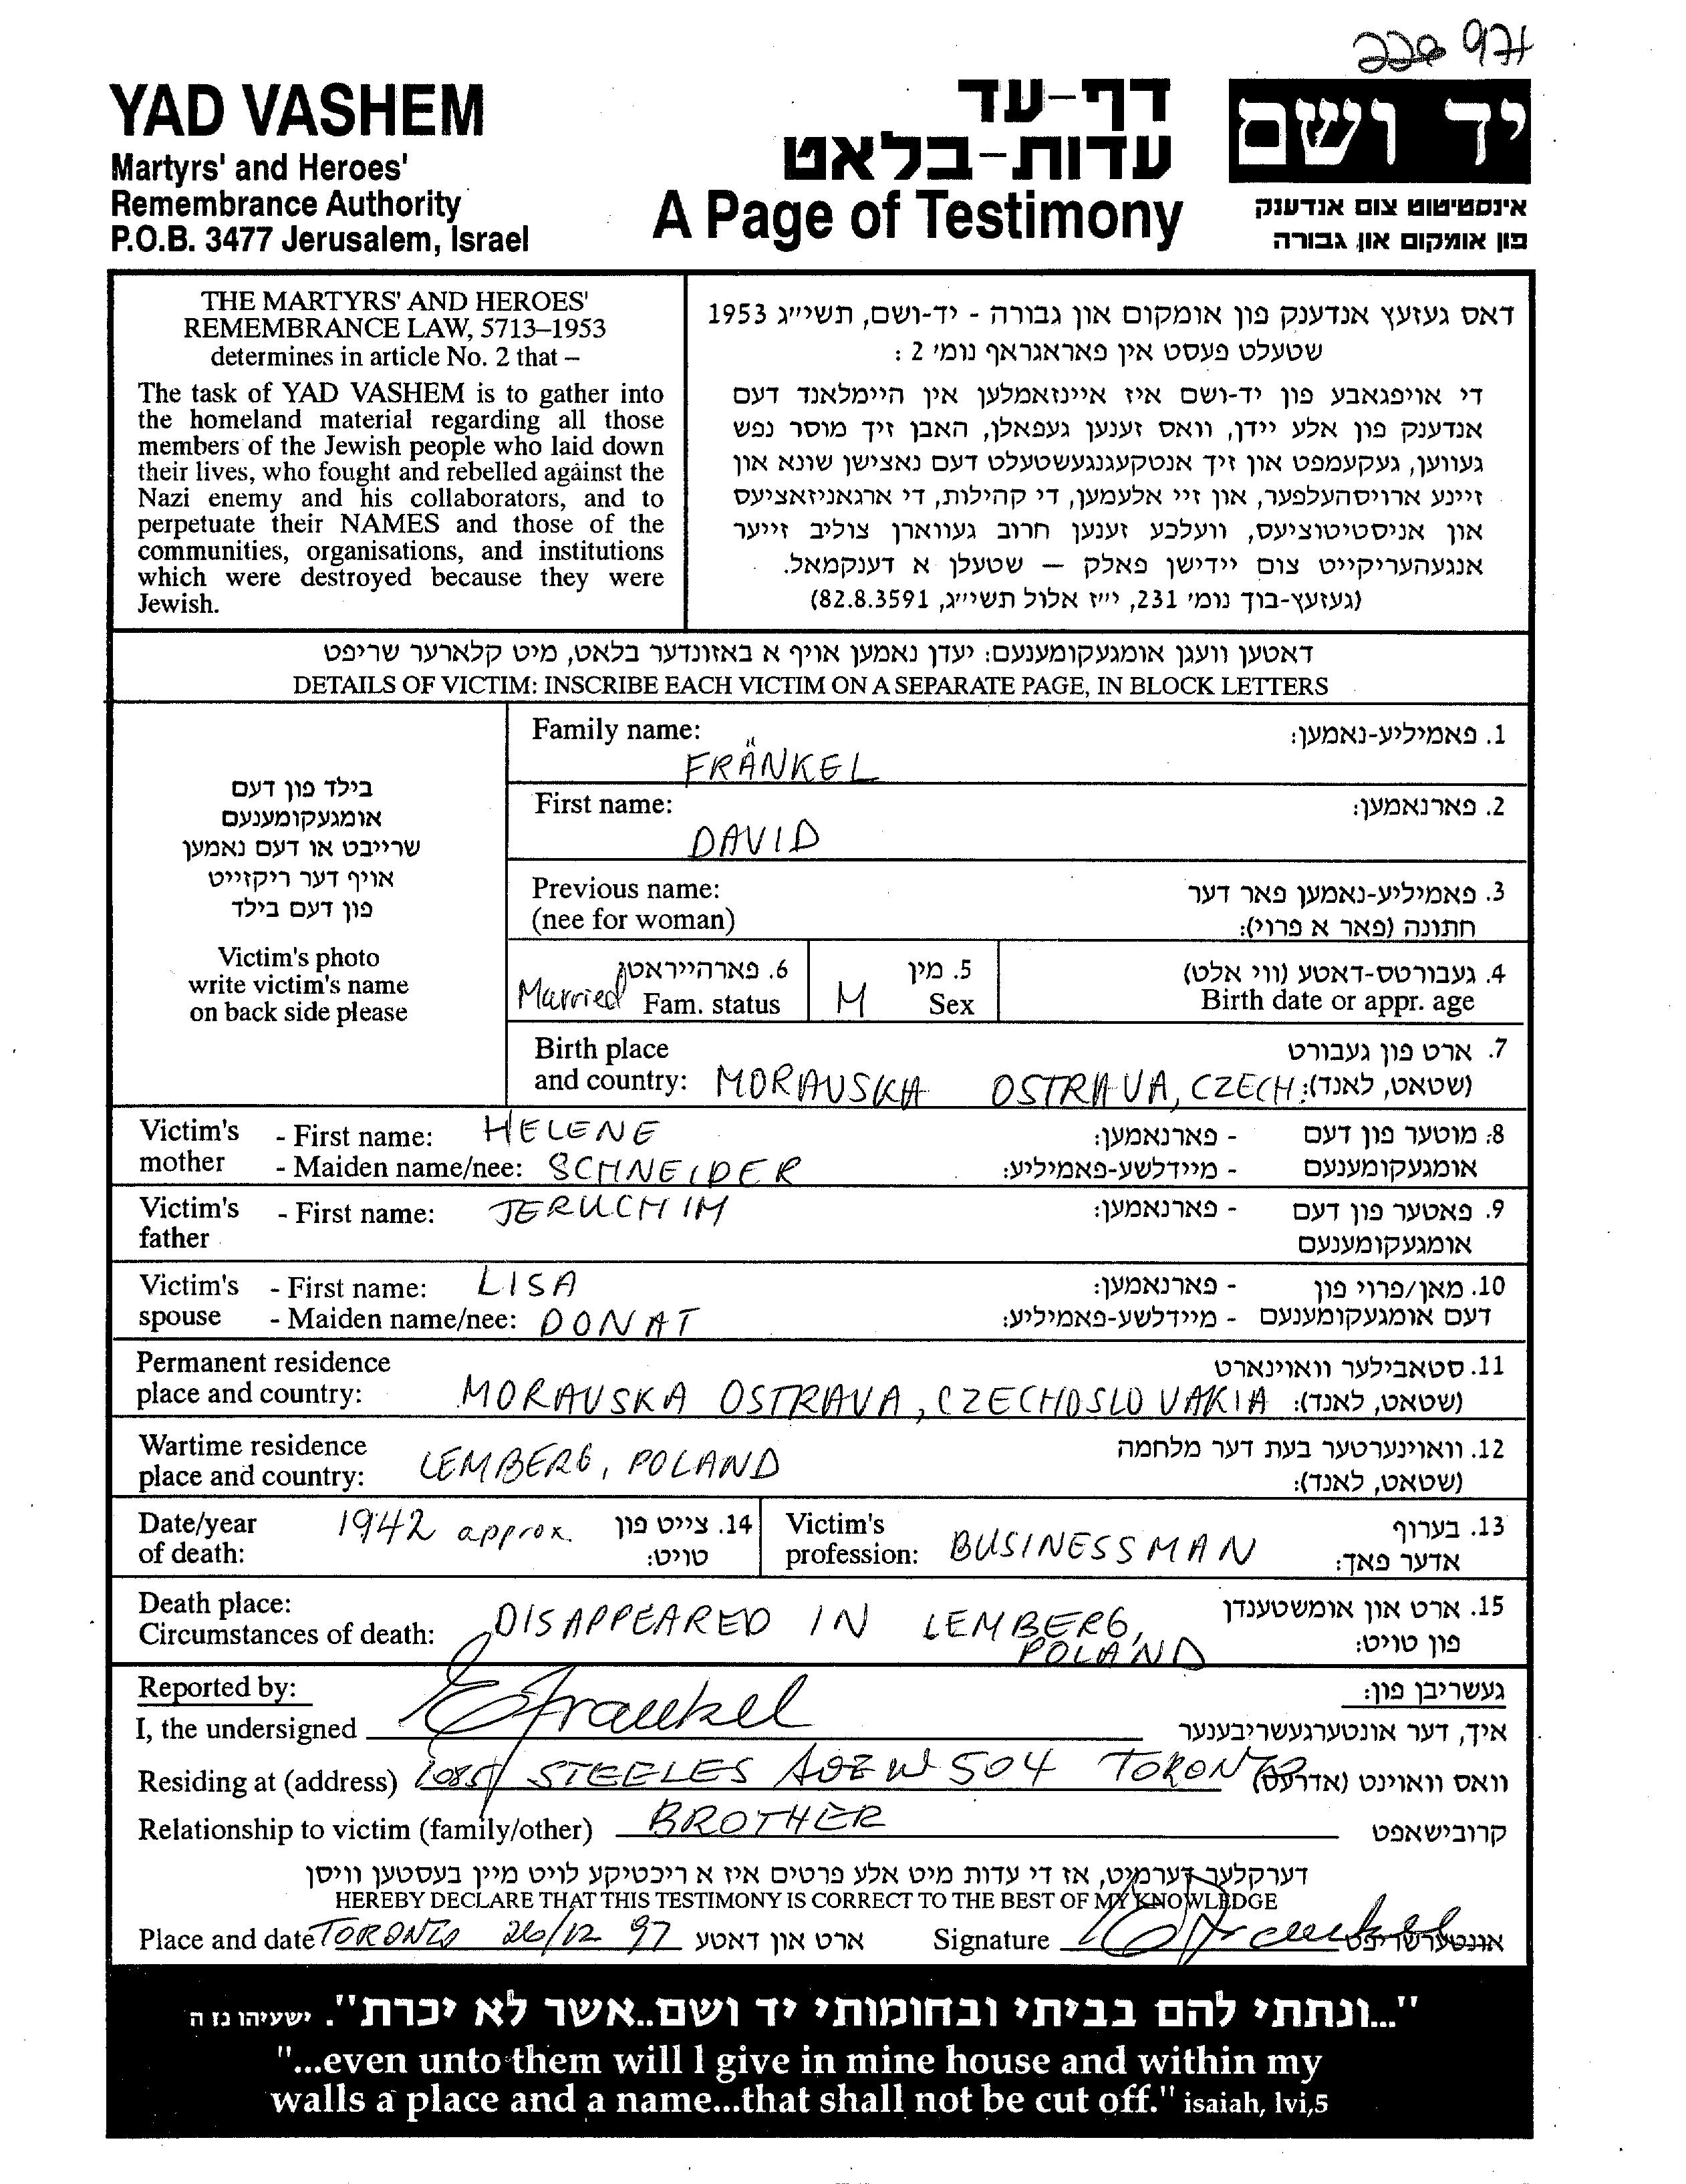 YAD VASHEM
Martyrs' and Heroes'
Remembrance Authority
P.O.B. 3477 Jerusalem, Israel
דף-עד
עדות-בלאט
A Page of Testimony
יד ושם
אינסטיטוט צום אנדענק
פון אומקום און גבורה
THE MARTYRS' AND HEROES'
REMEMBRANCE LAW, 5713–1953
determines in article No. 2 that –
The task of YAD VASHEM is to gather into
the homeland material regarding all those
members of the Jewish people who laid down
their lives, who fought and rebelled against the
Nazi enemy and his collaborators, and to
perpetuate their NAMES and those of the
communities, organisations, and institutions
which were destroyed because they were
Jewish.
דאס געזעץ אנדענק פון אומקום און גבורה - יד-ושם, תשי״ג 1953
שטעלט פעסט אין פאראגראף נומ׳ 2 :
די אויפגאבע פון יד-ושם איז איינזאמלען אין היימלאנד דעם
אנדענק פון אלע יידן, וואס זענען געפאלן, האבן זיך מוסר נפש
געווען, געקעמפט און זיך אנטקעגנגעשטעלט דעם נאצישן שונא און
זיינע ארויסהעלפער, און זיי אלעמען, די קהילות, די ארגאניזאציעס
און אניסטיטוציעס, וועלכע זענען חרוב געווארן צוליב זייער
אנגעהעריקייט צום יידישן פאלק — שטעלן א דענקמאל.
(געזעץ-בוך נומ׳ 231, י״ז אלול תשי״ג, 82.8.3591)
דאטען וועגן אומגעקומענעם: יעדן נאמען אויף א באזונדער בלאט, מיט קלארער שריפט
DETAILS OF VICTIM: INSCRIBE EACH VICTIM ON A SEPARATE PAGE, IN BLOCK LETTERS
בילד פון דעם
אומגעקומענעם
שרייבט או דעם נאמען
אויף דער ריקזייט
פון דעם בילד
Victim's photo
write victim's name
on back side please
Family name: FRÄNKEL 1. פאמיליע-נאמען:
First name: DAVID 2. פארנאמען:
Previous name: 3. פאמיליע-נאמען פאר דער
(nee for woman) חתונה (פאר א פרוי):
Married 6. פארהייראטן M 5. מין 4. געבורטס-דאטע (ווי אלט)
Fam. status Sex Birth date or appr. age
Birth place 7. ארט פון געבורט
and country: MORAVSKA OSTRAVA, CZECH. (שטאט, לאנד):
Victim's - First name: HELENE - פארנאמען: 8. מוטער פון דעם
mother - Maiden name/nee: SCHNEIDER - מיידלשע-פאמיליע: אומגעקומענעם
Victim's - First name: JERUCHIM - פארנאמען: 9. פאטער פון דעם
father אומגעקומענעם
Victim's - First name: LISA - פארנאמען: 10. מאן/פרוי פון
spouse - Maiden name/nee: DONAT - מיידלשע-פאמיליע: דעם אומגעקומענעם
Permanent residence 11. סטאבילער וואוינארט
place and country: MORAVSKA OSTRAVA, CZECHOSLOVAKIA (שטאט, לאנד):
Wartime residence 12. וואוינערטער בעת דער מלחמה
place and country: LEMBERG, POLAND (שטאט, לאנד):
Date/year 1942 approx. 14. צייט פון Victim's 13. בערוף
of death: טויט: profession: BUSINESSMAN אדער פאך:
Death place: 15. ארט און אומשטענדן
Circumstances of death: DISAPPEARED IN LEMBERG, פון טויט:
POLAND
Reported by: געשריבן פון:
I, the undersigned EFrankel איך, דער אונטערגעשריבענער
Residing at (address) 1085 STEELES AVE W 504 TORONTO וואס וואוינט (אדרעס)
Relationship to victim (family/other) BROTHER קרובישאפט
דערקלער דערמיט, אז די עדות מיט אלע פרטים איז א ריכטיקע לויט מיין בעסטען וויסן
HEREBY DECLARE THAT THIS TESTIMONY IS CORRECT TO THE BEST OF MY KNOWLEDGE
Place and date TORONTO 26/12 97 ארט און דאטע Signature EFrankel אונטערשריפט
"...ונתתי להם בביתי ובחומותי יד ושם..אשר לא יכרת". ישעיהו נז ה
"...even unto them will I give in mine house and within my
walls a place and a name...that shall not be cut off." isaiah, lvi,5